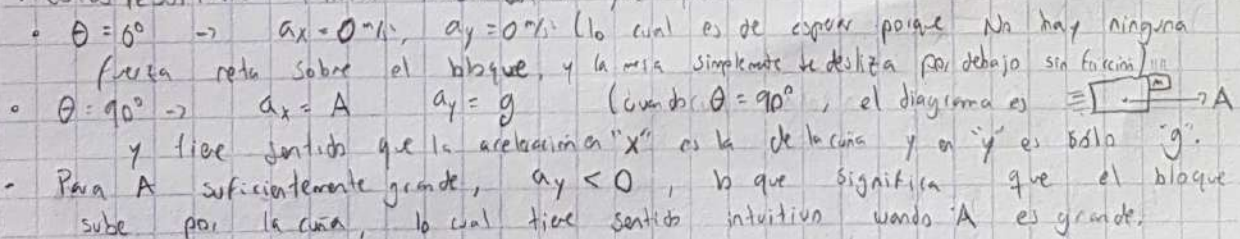 • θ = 0° → ax = 0 m/s², ay = 0 m/s² (lo cual es de esperar porque No hay ninguna
fuerza neta sobre el bloque, y la mesa simplemente se desliza por debajo sin fricción)
• θ = 90° → ax = A ay = g (cuando θ = 90°, el diagrama es m → A
y tiene sentido que la aceleración en "x" es la de la cuña y en "y" es sólo "g".
- Para A suficientemente grande, ay < 0, lo que significa que el bloque
sube por la cuña, lo cual tiene sentido intuitivo cuando A es grande.